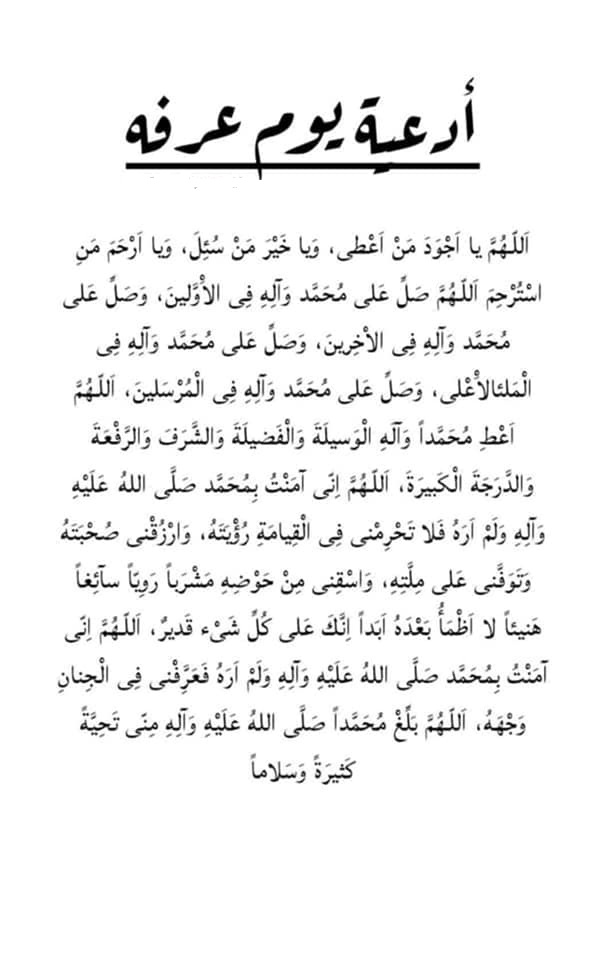 أدعية يوم عرفه
اَللّهُمَّ يا اَجْوَدَ مَنْ اَعْطى، وَيا خَيْرَ مَنْ سُئِلَ، وَيا اَرْحَمَ مَنِ
اسْتُرْحِمَ اَللّهُمَّ صَلِّ عَلى مُحَمَّد وَآلِهِ فِى الاَْوَّلينَ، وَصَلِّ عَلى
مُحَمَّد وَآلِهِ فِى الاْخِرينَ، وَصَلِّ عَلى مُحَمَّد وَآلِهِ فِى
الْمَلئالاَْعْلى، وَصَلِّ عَلى مُحَمَّد وَآلِهِ فِى الْمُرْسَلينَ، اَللّهُمَّ
اَعْطِ مُحَمَّداً وَآلَهِ الْوَسيلَةَ وَالْفَضيلَةَ وَالشَّرَفَ وَالرَّفْعَةَ
وَالدَّرَجَةَ الْكَبيرَةَ، اَللّهُمَّ اِنّى آمَنْتُ بِمُحَمَّد صَلَّى اللهُ عَلَيْهِ
وَآلِهِ وَلَمْ اَرَهُ فَلا تَحْرِمْنى فِى الْقِيامَةِ رُؤْيَتَهُ، وَارْزُقْنى صُحْبَتَهُ
وَتَوَفَّنى عَلى مِلَّتِهِ، وَاسْقِنى مِنْ حَوْضِهِ مَشْرَباً رَوِيّاً سآئِغاً
هَنيئاً لا اَظْمَأُ بَعْدَهُ اَبَداً اِنَّكَ عَلى كُلِّ شَىْء قَديرٌ، اَللّهُمَّ اِنّى
آمَنْتُ بِمُحَمَّد صَلَّى اللهُ عَلَيْهِ وَآلِهِ وَلَمْ اَرَهُ فَعَرَّفْنى فِى الْجِنانِ
وَجْهَهُ، اَللّهُمَّ بَلِّغْ مُحَمَّداً صَلَّى اللهُ عَلَيْهِ وَآلِهِ مِنّى تَحِيَّةً
كَثيرَةً وَسَلاماً